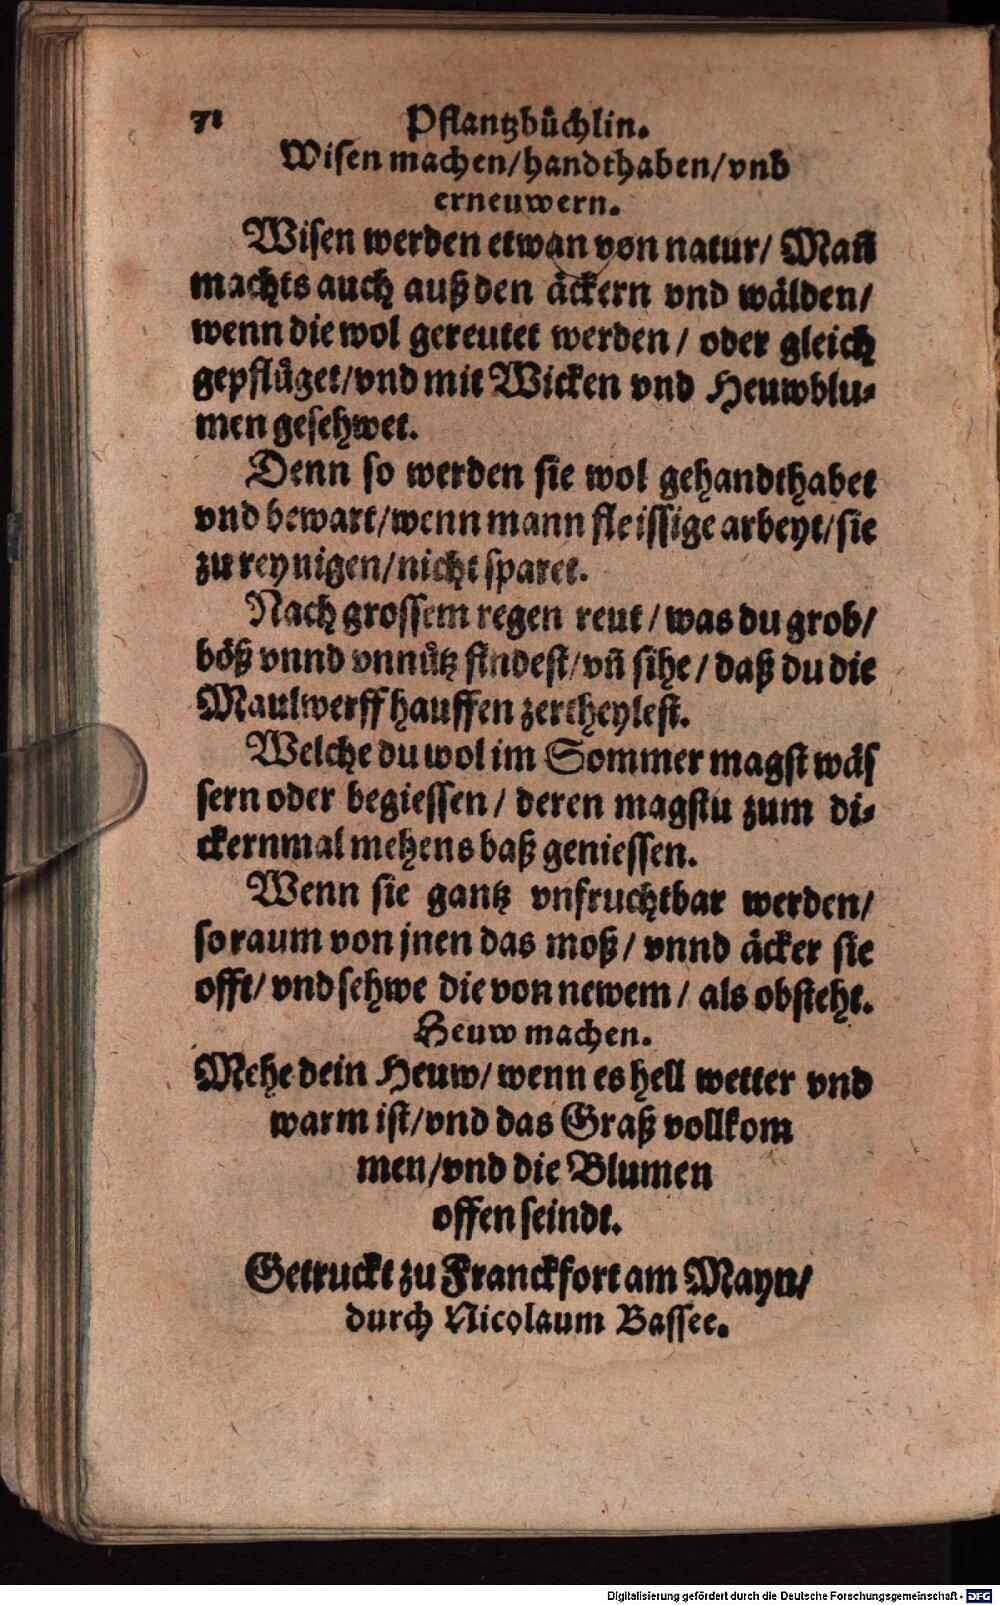 71 Pflantzbuͤchlin.
Wisen machen/handthaben/vnd
erneuwern.
Wisen werden etwan von natur/ Mañ
machts auch auß den aͤckern vnd waͤlden/
wenn die wol gereutet werden / oder gleich
gepfluͤget/vnd mit Wicken vnd Heuwblu⸗
men gesehwet.
Denn so werden sie wol gehandthabet
vnd bewart/wenn mann fleissige arbeyt/sie
zu reynigen/nicht sparet.
Nach grossem regen reut / was du grob/
boͤß vnnd vnnuͤtz findest/vñ sihe / daß du die
Maulwerff hauffen zertheylest.
Welche du wol im Sommer magst waͤs
sern oder begiessen / deren magstu zum di⸗
ckernmal mehens baß geniessen.
Wenn sie gantz vnfruchtbar werden/
so raum von jnen das moß / vnnd aͤcker sie
offt/ vnd sehwe die von newem / als obsteht.
Heuw machen.
Mehe dein Heuw/ wenn es hell wetter vnd
warm ist/vnd das Graß vollkom
men/vnd die Blumen
offen seindt.
Getruckt zu Franckfort am Mayn/
durch Nicolaum Bassee.
Digitalisierung gefördert durch die Deutsche Forschungsgemeinschaft - DFG